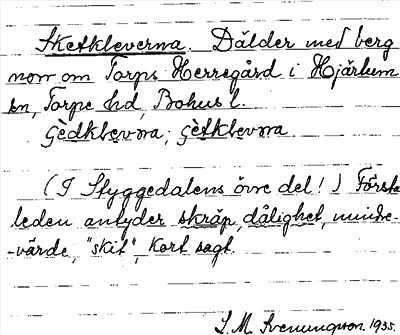 Sketkleverna. Dälder med berg
norr om Torps Herregård i Hjärtum
sn, Torpe hd, Bohusl.
(I Styggedalens övre del!) Första
leden antyder skräp, dålighet, mindre-
-värde, "skit", kort sagt.
S. M. Svenungsson. 1935.